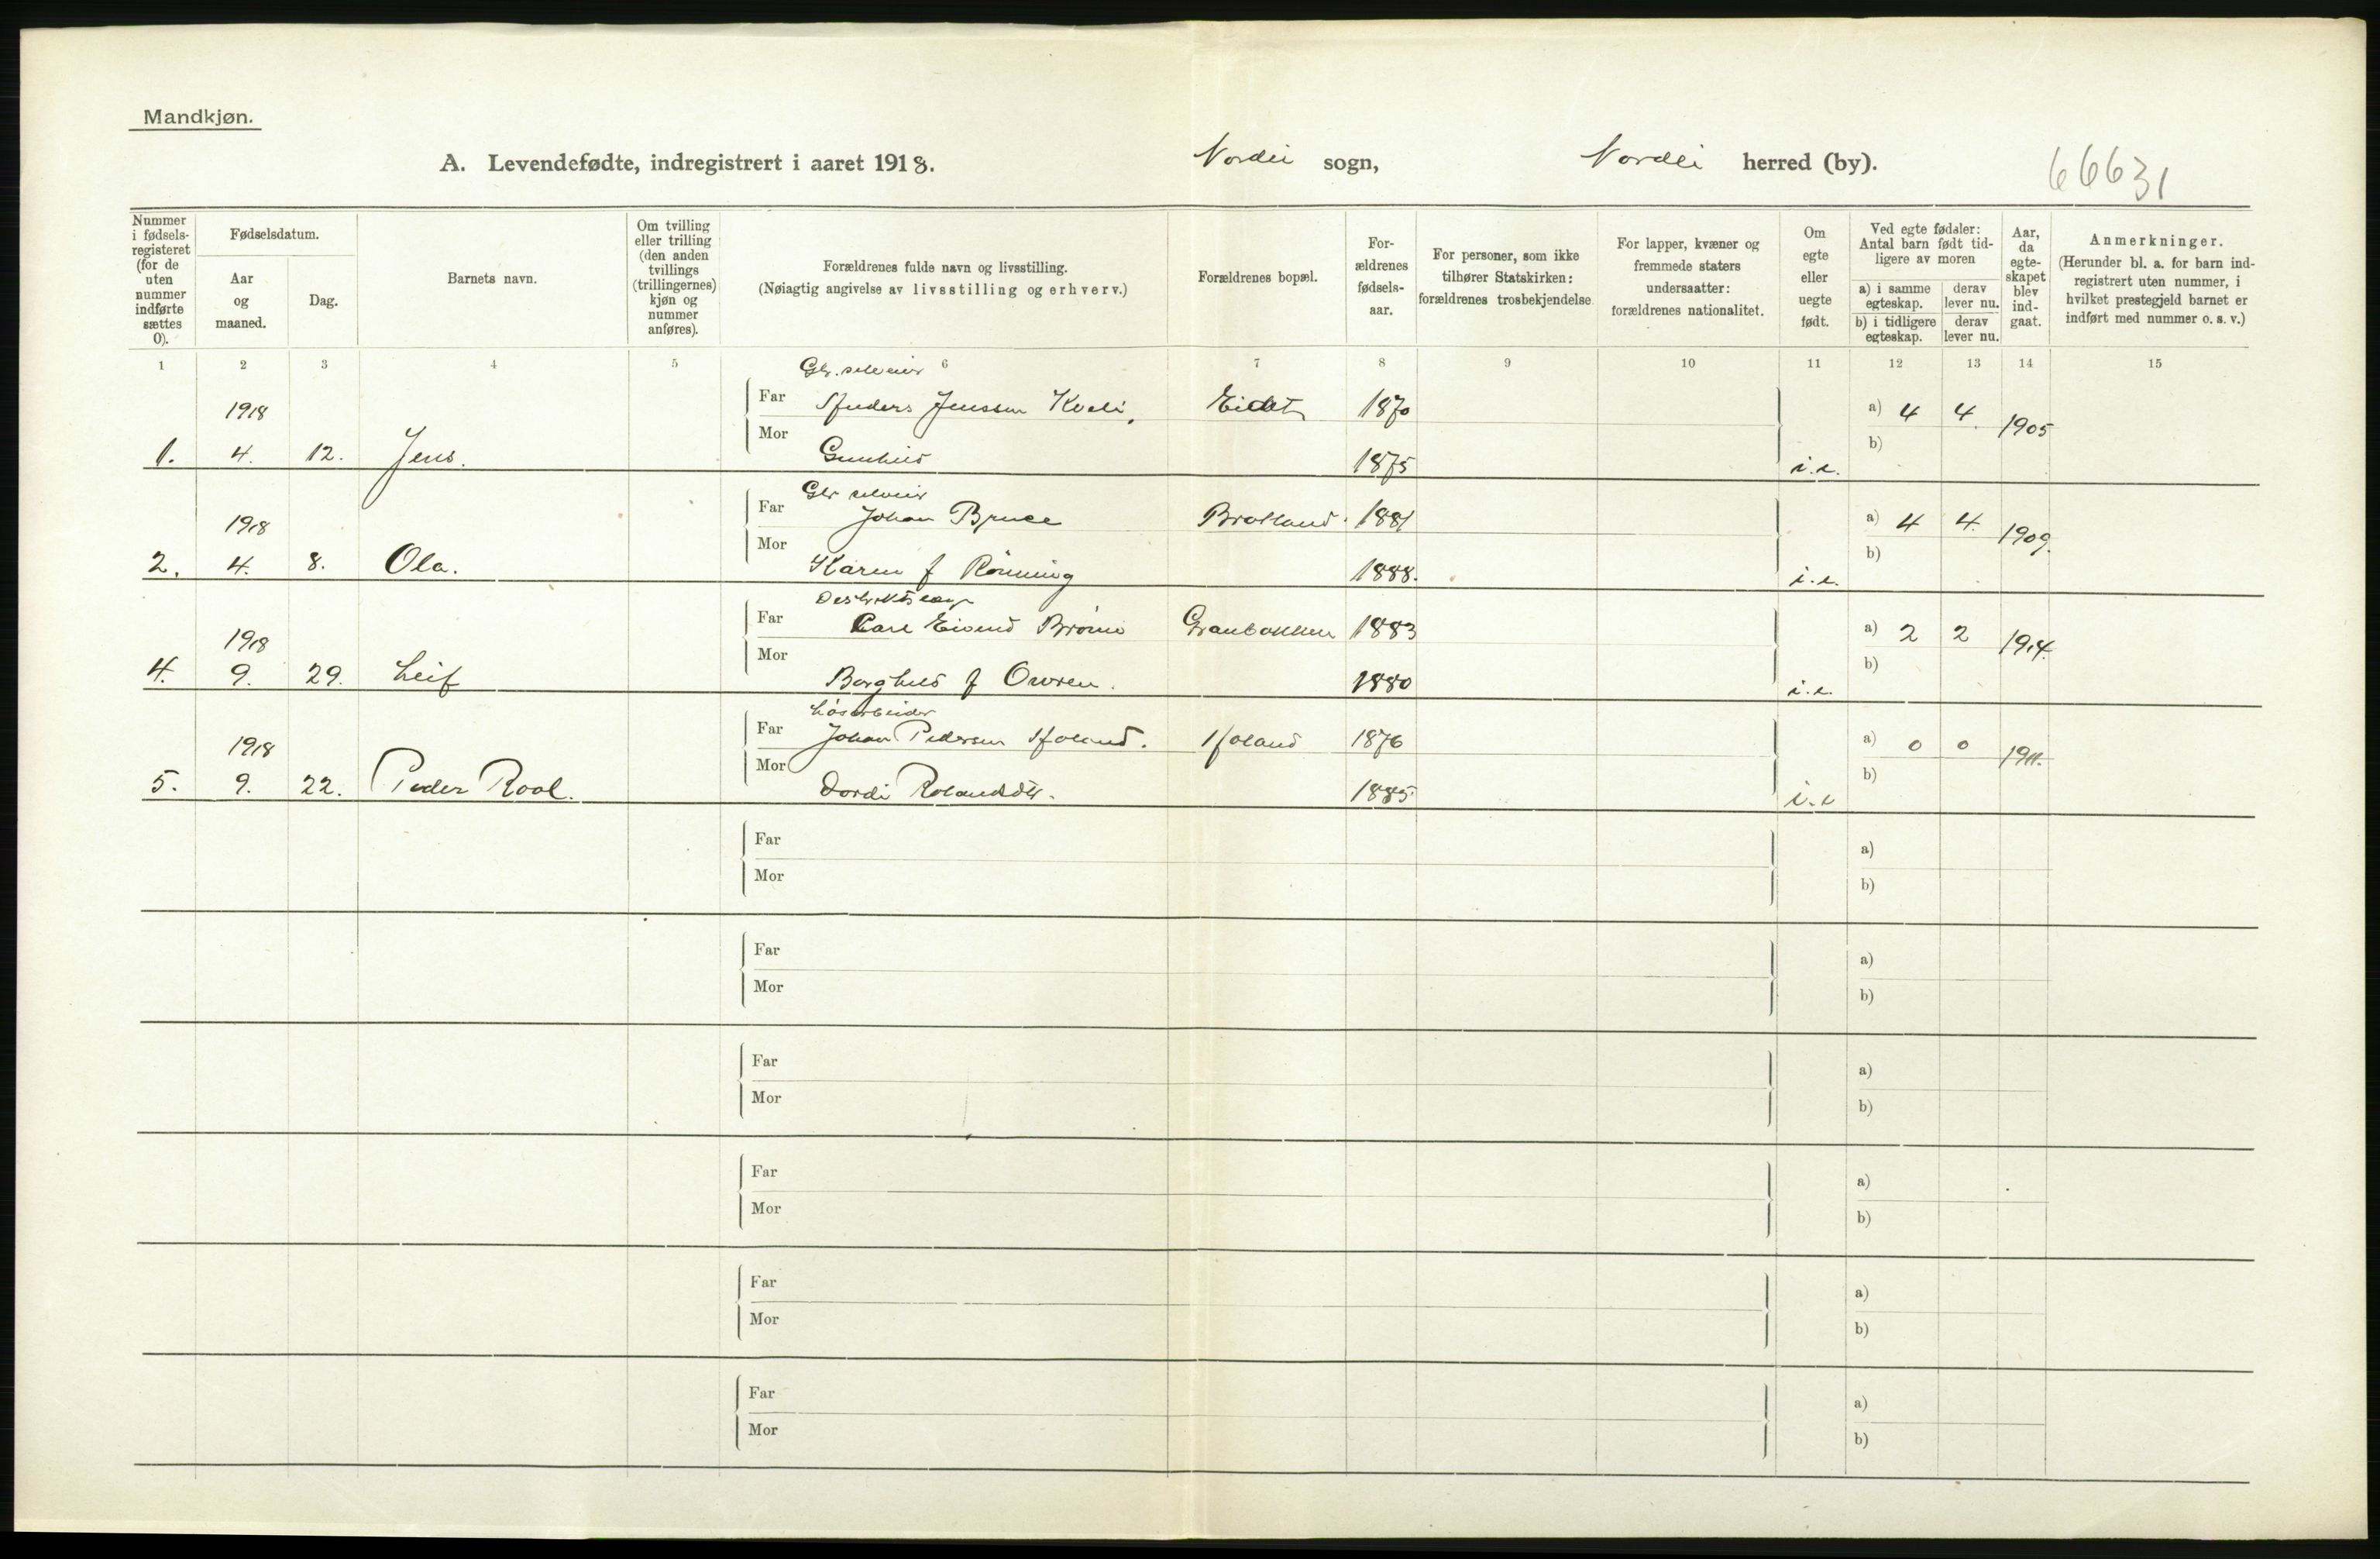 Mandkjøn.
A. Levendefødte, indregistrert i aaret 1918. Nordli sogn, Nordli herred (by). 66631
Nummer i fødsels-registeret (for de uten nummer indførte sættes 0).
Fødselsdatum.
Aar og maaned.
Dag.
Barnets navn.
Om tvilling eller trilling (den anden tvillings (trillingernes) kjøn og nummer anføres).
Forældrenes fulde navn og livsstilling.
(Nøiagtig angivelse av livsstilling og erhverv.)
Forældrenes bopæl.
For-ældrenes fødsels-aar.
For personer, som ikke tilhører Statskirken: forældrenes trosbekjendelse.
For lapper, kvæner og fremmede staters undersaatter: forældrenes nationalitet.
Om egte eller uegte født.
Ved egte fødsler: Antal barn født tid-ligere av moren
a) i samme egteskap. derav lever nu.
b) i tidligere egteskap. derav lever nu.
Aar, da egte-skapet blev ind-gaat.
Anmerkninger.
(Herunder bl. a. for barn ind-registrert uten nummer, i hvilket prestegjeld barnet er indført med nummer o. s. v.)
1 2 3 4 5 6 7 8 9 10 11 12 13 14 15
Gbr. selveier
1918 Far Anders Jenssen Kveli, Eidet 1870 a) 4 4. 1905
1. 4. 12. Jens. Mor Gunhild 1875 i.e. b)
Gbr selveier
1918 Far Johan Bruce 1881 a) 4 4. 1909.
2. 4. 8. Ola. Mor Karen f Rönning 1888. i.e. b)
Distriktslæge
1918 Far Carl Eivind Granbakken 1883 a) 2 2 1914.
4. 9. 29. Leif Mor Borghild f Owren. 1880 i.e. b)
Løsarbeider
1918 Far Johan Pedersen Aaland. Aaland 1876 a) 0 0 1911.
5. 9. 22. Peder Roal. Mor Dordi 1885 i.e b)
Far a)
Mor b)
Far a)
Mor b)
Far a)
Mor b)
Far a)
Mor b)
Far a)
Mor b)
Far a)
Mor b)